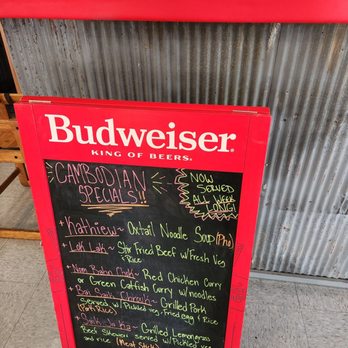 Budweiser
KING OF BEERS.
CAMBODIAN
SPECIALS!!
NOW
SERVED
ALL WEEK
LONG!
Kathiew ~ Oxtail Noodle Soup (Pho)
Lok Lak ~ Stir Fried Beef w/ Fresh Veg
Rice
Nom Bahn Chok ~ Red Chicken Curry
or Green Catfish Curry w/ noodles
Bai Sach Chrouk ~ Grilled Pork
served w/ Pickled veg, Fried Egg & Rice
~ Grilled Lemongrass
Beef Skewers served w/ Pickled veg
and rice (Meat Sticks)